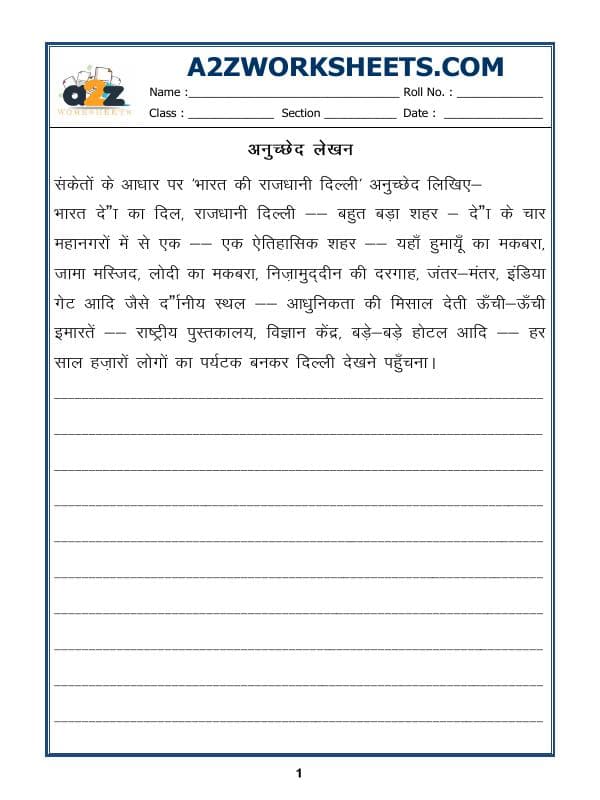 A2ZWORKSHEETS.COM
a2z
WORKSHEETS
Name :______________________________ Roll No. : ____________
Class : ____________ Section __________ Date : ______________
अनुच्छेद लेखन
संकेतों के आधार पर ‘भारत की राजधानी दिल्ली’ अनुच्छेद लिखिए–
भारत दे”ा का दिल, राजधानी दिल्ली –– बहुत बड़ा शहर – दे”ा के चार
महानगरों में से एक –– एक ऐतिहासिक शहर –– यहाँ हुमायूँ का मकबरा,
जामा मस्जिद, लोदी का मकबरा, निज़ामुद्दीन की दरगाह, जंतर–मंतर, इंडिया
गेट आदि जैसे द”र्ानीय स्थल –– आधुनिकता की मिसाल देती ऊँची–ऊँची
इमारतें –– राष्ट्रीय पुस्तकालय, विज्ञान केंद्र, बड़े–बड़े होटल आदि –– हर
साल हज़ारों लोगों का पर्यटक बनकर दिल्ली देखने पहुँचना।
1